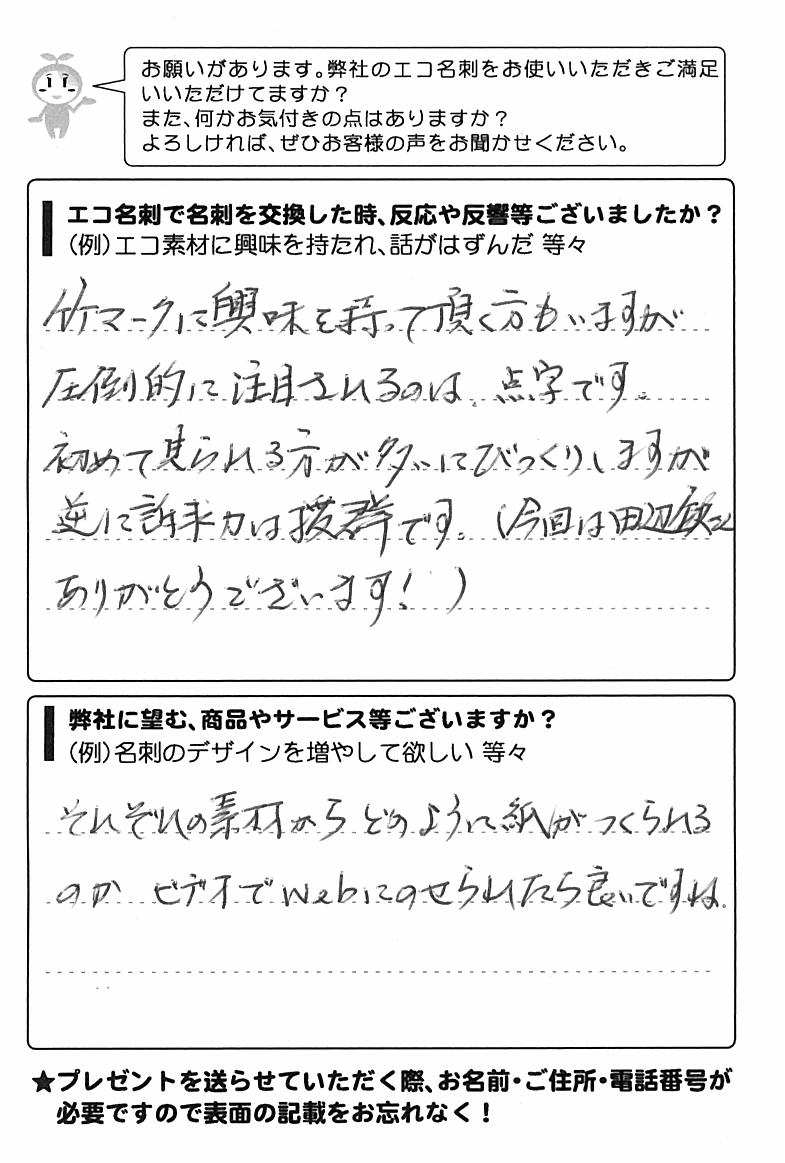 お願いがあります。弊社のエコ名刺をお使いいただきご満足
いいただけてますか？
また、何かお気付きの点はありますか？
よろしければ、ぜひお客様の声をお聞かせください。
エコ名刺で名刺を交換した時、反応や反響等ございましたか？
（例）エコ素材に興味を持たれ、話がはずんだ 等々
竹マークに興味を持って頂く方もいますが
圧倒的に注目されるのは、点字です。
初めて見られる方が多いにびっくりしますが
逆に訴求力は抜群です。（今回は田辺
ありがとうございます！）
弊社に望む、商品やサービス等ございますか？
（例）名刺のデザインを増やして欲しい 等々
それぞれの素材からどのように紙がつくられる
のか ビデオでWebにのせられたら良いですね。
★プレゼントを送らせていただく際、お名前・ご住所・電話番号が
必要ですので表面の記載をお忘れなく！